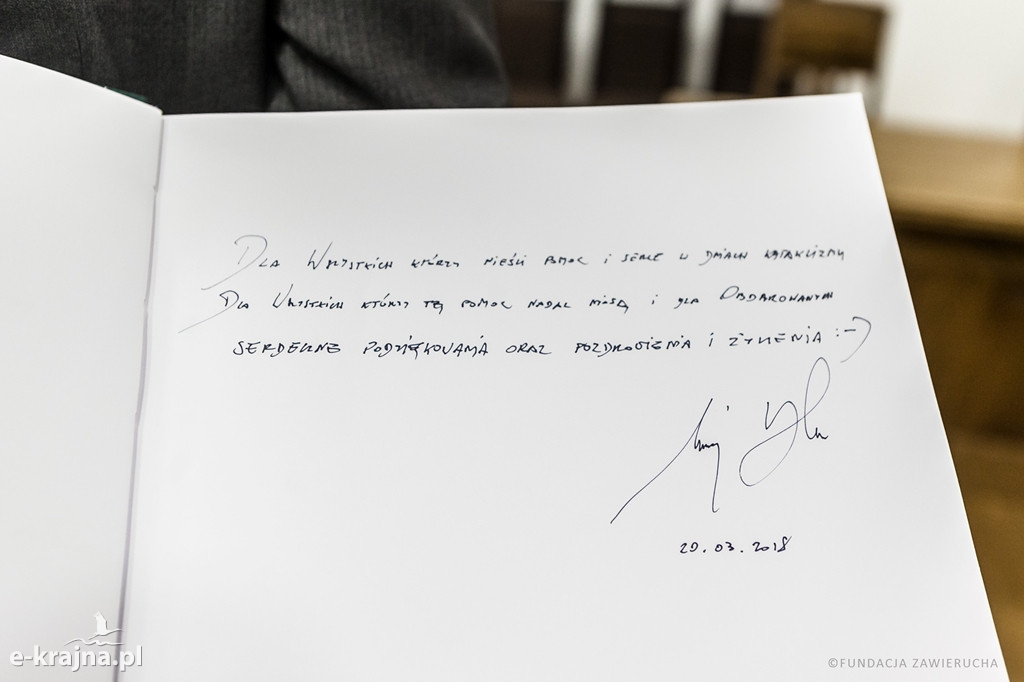 Dla Wszystkich którzy nieśli pomoc i serce w dniach kataklizmu
Dla Wszystkich którzy tę pomoc nadal niosą i dla Obdarowanych
SERDECZNE PODZIĘKOWANIA ORAZ POZDROWIENIA I ŻYCZENIA :-)
20.03.2018
e-krajna.pl
©FUNDACJA ZAWIERUCHA